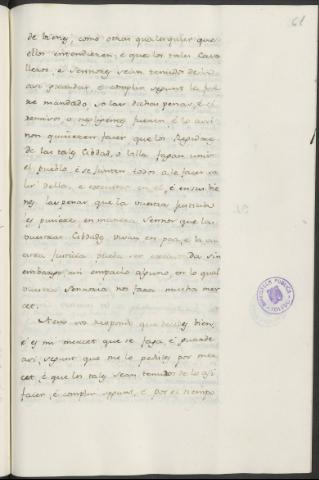 61
de bienes, como otras qualesquier que
ellos entendieren, e que los tales Cava
lleros, e Sennores sean tenudos de lo
asi guardar, e complir segunt les fue
re mandado, so las dichas penas, e si
remisos, o negligentes fueren, e lo asi
non quisieren facer que los Regidores
de las tales Cibdad, o Villa fagan unir
el pueblo, e se junten todos a le facer sa
lir della, e executar en el, e en sus bie
nes, las penas, que la vuestra justicia
es pusiere, en manera Sennor que las
vuestras Cibdades vivan en paz, e la vu
estra justicia pueda ser executada sin
embargo, ni empacho alguno, en lo qual
vuestra Sennoria nos fara mucha mer
cet.
A esto vos respondo que decides bien,
e es mi mercet que se faga, e guarde
asi, segunt que me lo pedistes por mer
cet, e que los tales sean tenudos de lo asi
facer, e complir segunt, e por el tiempo
BIBLIOTECA PUBLICA
TOLEDO